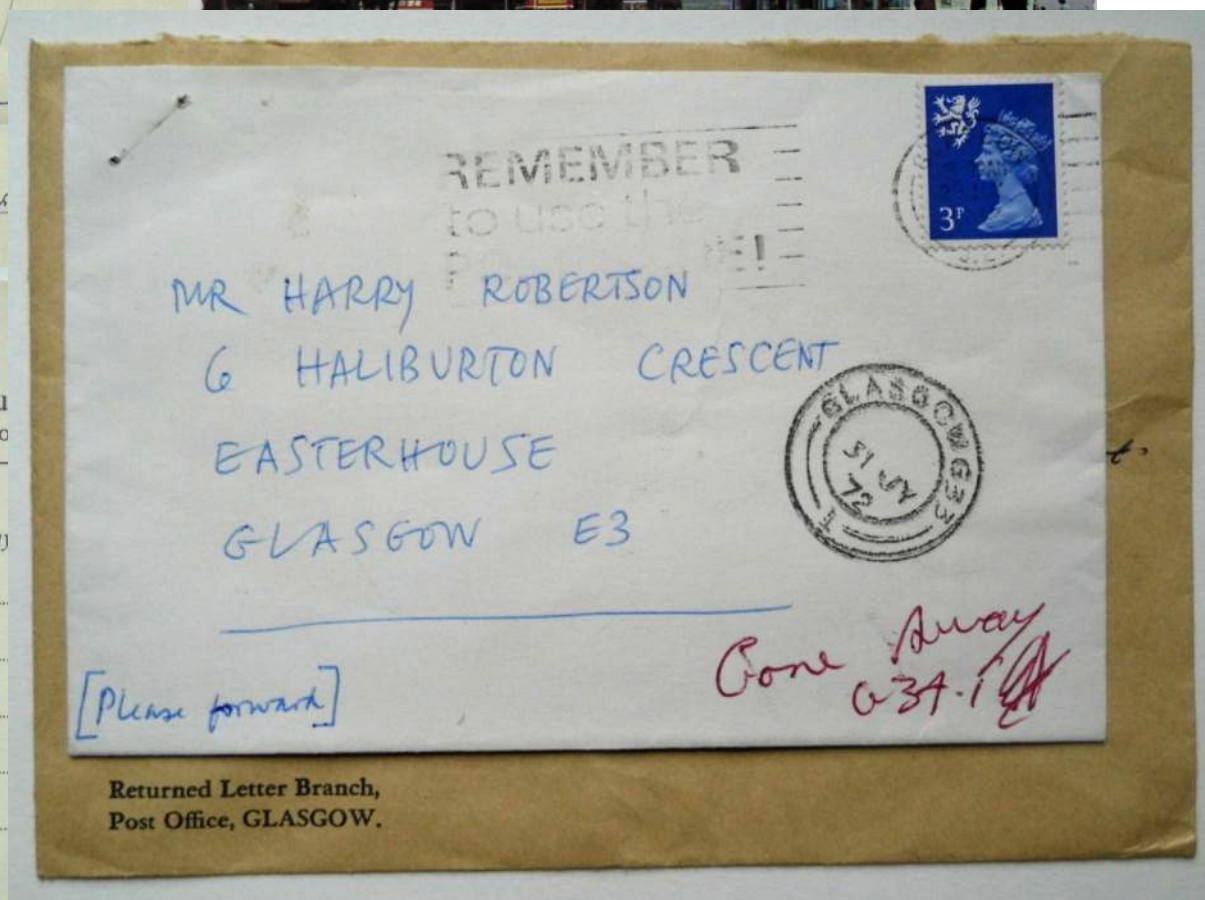 REMEMBER
to use the
E!
3P
MR HARRY ROBERTSON
6 HALIBURTON CRESCENT
EASTERHOUSE
GLASGOW E3
GLASGOW G33
31 JY
72
1
Gone Away
G34.1
[Please forward]
Returned Letter Branch,
Post Office, GLASGOW.